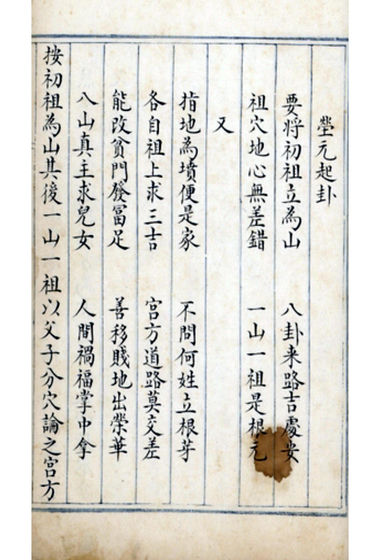 塋元起卦
要将初祖立為山 八卦来路吉慶安
祖穴地心無差錯 一山一祖是根元
又
指地為墳便是家 不問何姓立根芽
各自祖上求三吉 宮方道路莫交差
能改貧門發冨足 善移賤地出榮華
八山真主求兒女 人間禍福掌中拿
按初祖為山其後一山一祖以父子分穴論之宮方